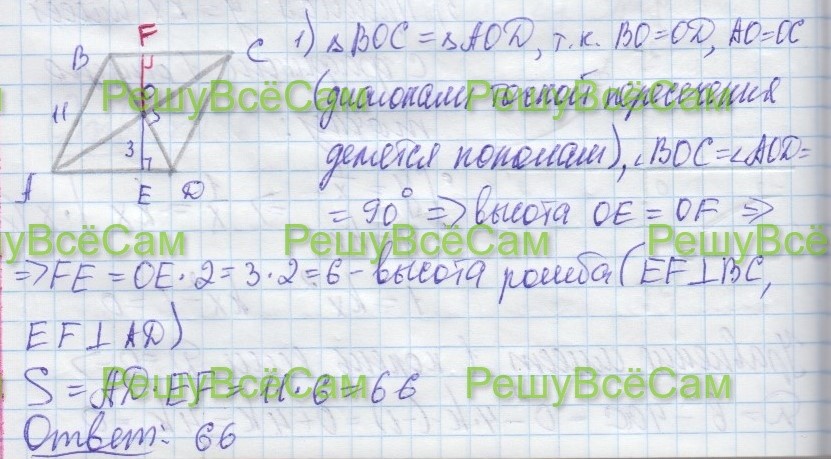 F
B
C
11
O
3
3
A
E
D
1) △BOC = △AOD, т.к. BO=OD, AO=OC
(диагонали точкой пересечения
делятся пополам), ∠BOC=∠AOD=
= 90° => высота OE = OF =>
=> FE = OE · 2 = 3 · 2 = 6 - высота ромба (EF⊥BC,
EF⊥AD)
S = AD · EF = 11 · 6 = 66
Ответ: 66
РешуВсёСам
РешуВсёСам
РешуВсёСам
РешуВсёСам
РешуВсёСам
РешуВсёСам